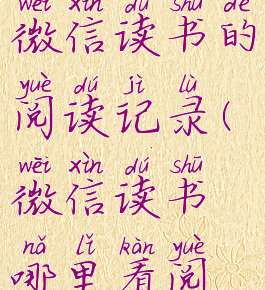 wēi xìn dú shū de
微信读书的
yuè dú jì lù
阅读记录(
wēi xìn dú shū
微信读书
nǎ lǐ kàn yuè
哪里看阅